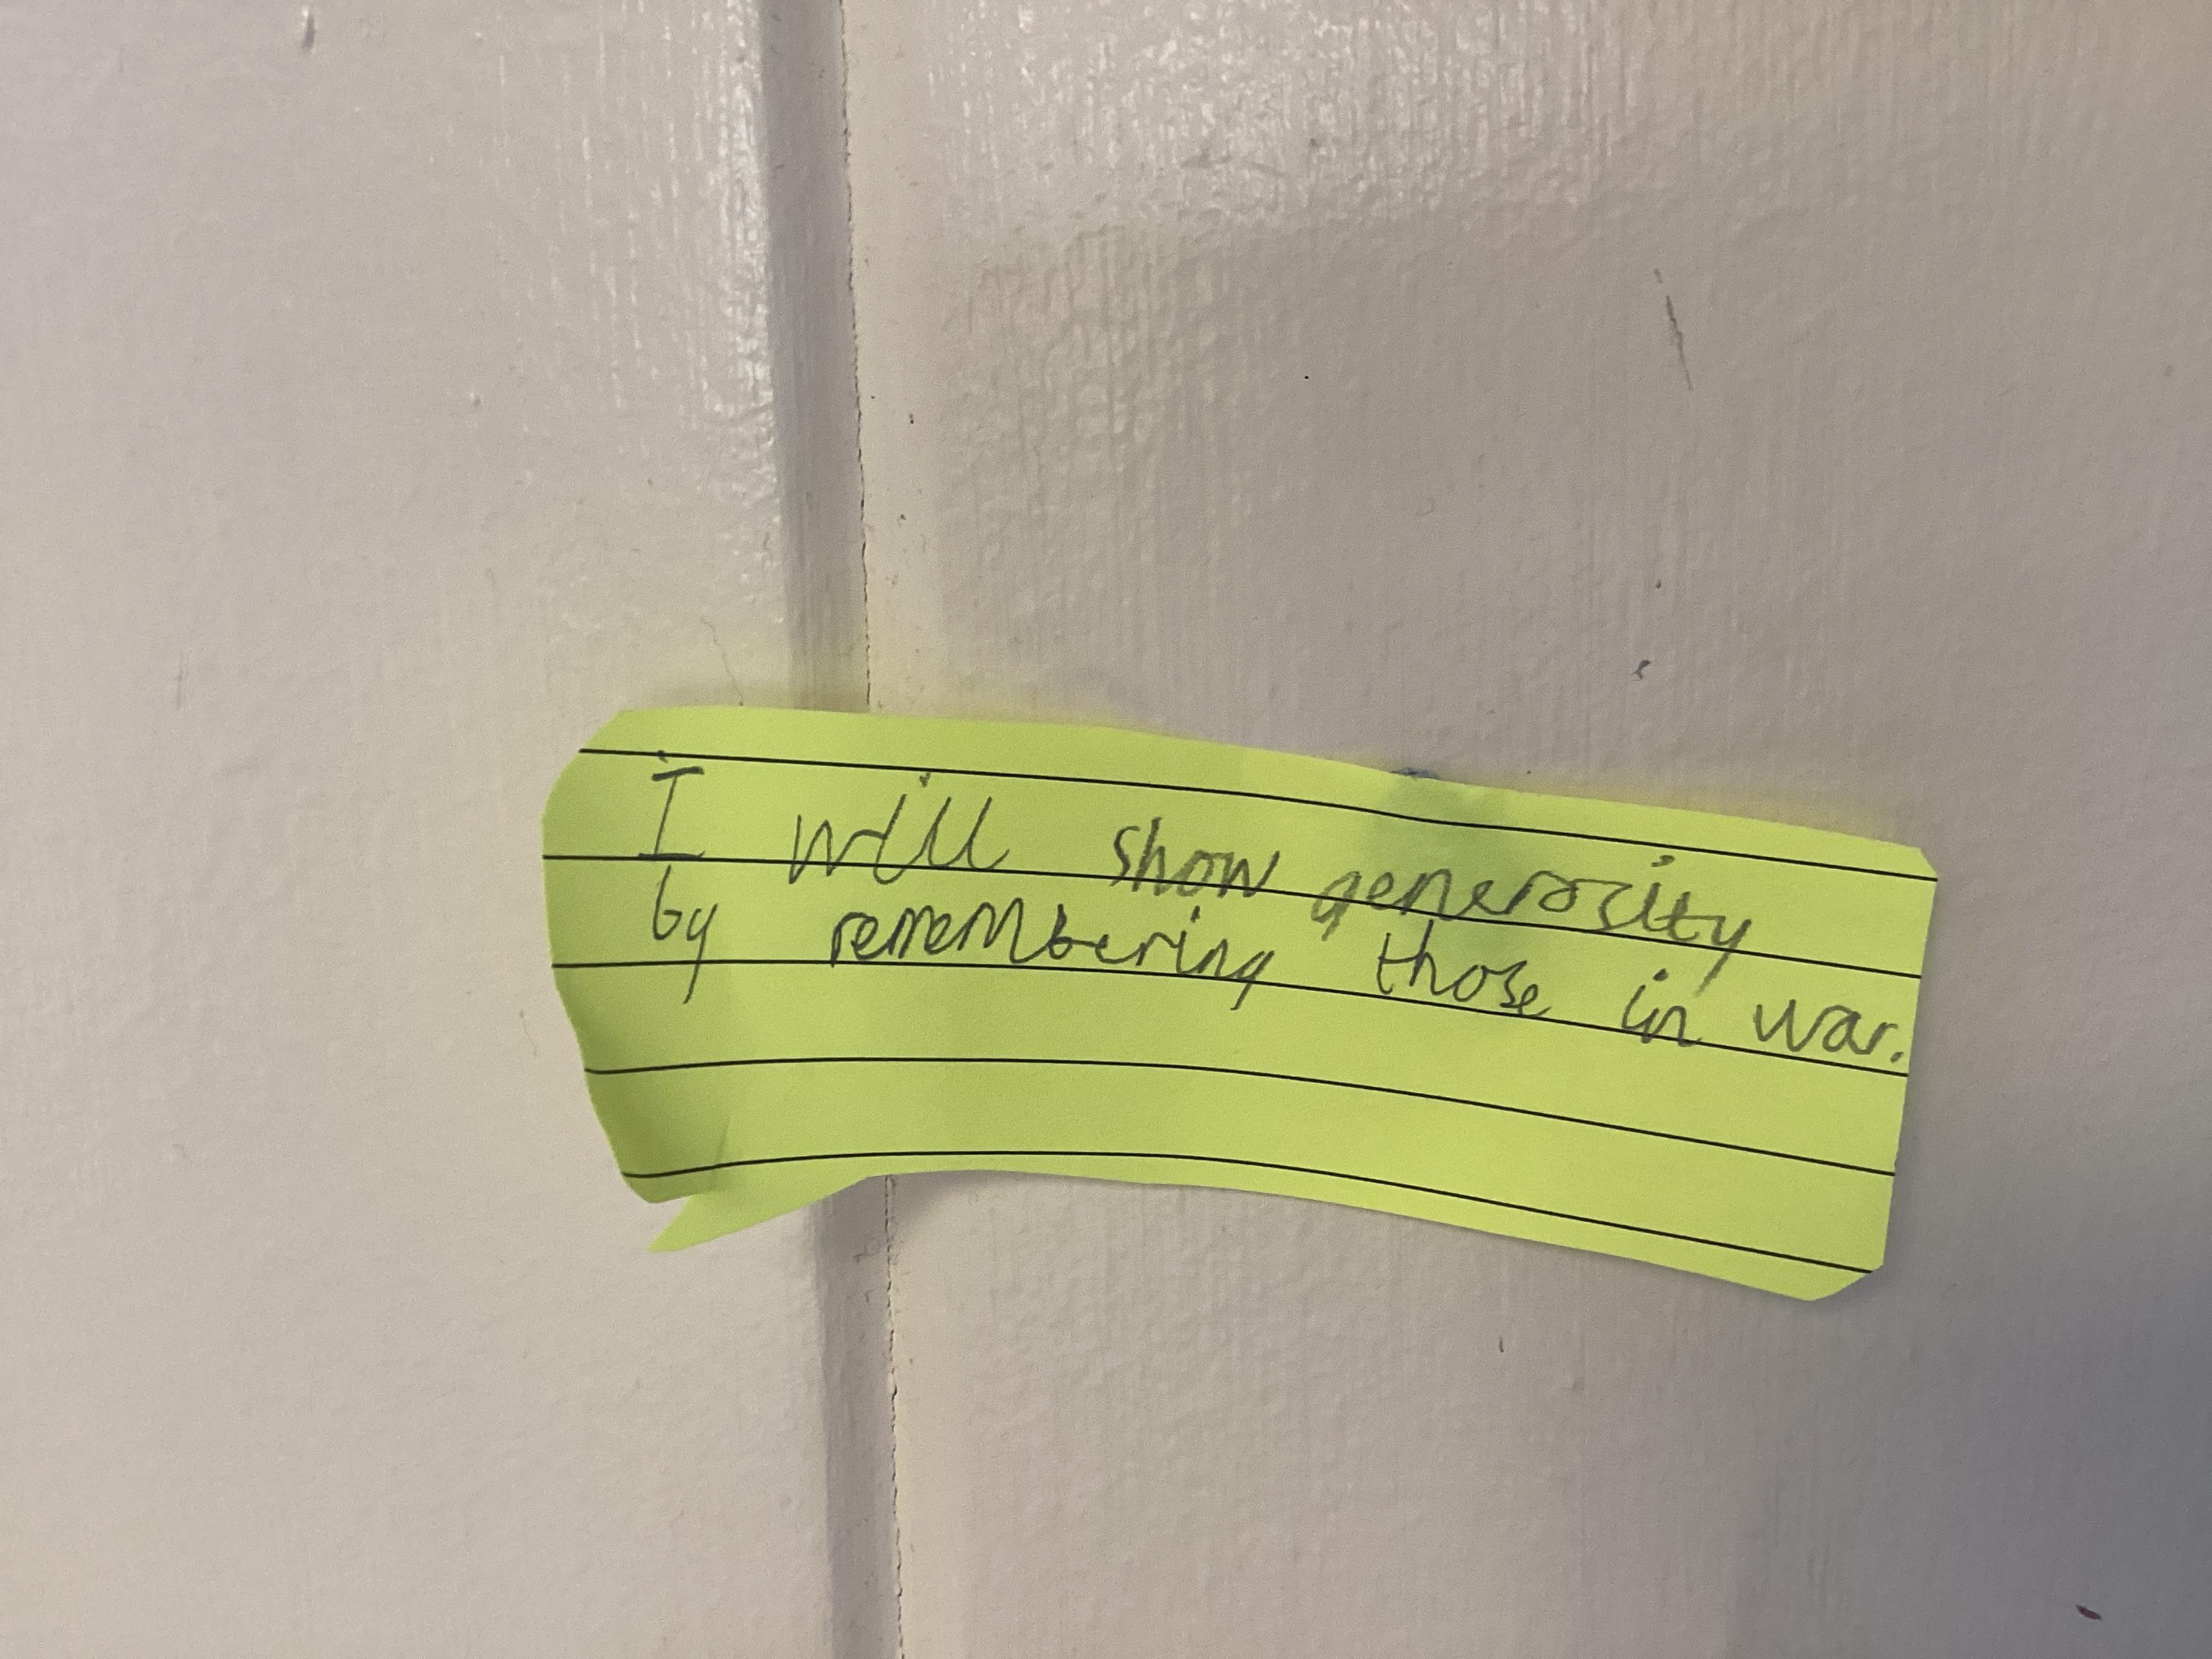 I will show generosity
by remembering those in war.